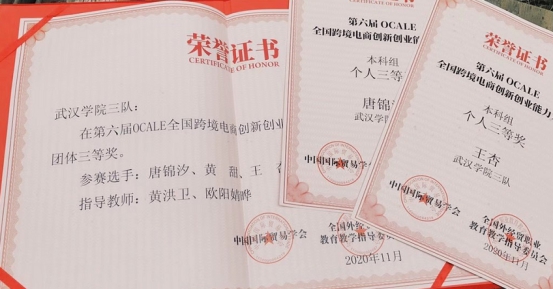 荣誉证书
CERTIFICATE OF HONOR
武汉学院三队：
在第六届OCALE全国跨境电商创新创业
团体三等奖。
参赛选手：唐锦汐、黄 甜、王 杏
指导教师：黄洪卫、欧阳婧晔
中国国际贸易学会
2020年11月
荣誉证书
CERTIFICATE OF HONOR
第六届 OCALE
全国跨境电商创新创业能
本科组
个人三等
唐锦汐
武汉学院三
中国国际贸易学会
全国外经
教育教学指导
荣誉证书
CERTIFICATE OF HONOR
第六届 OCALE
全国跨境电商创新创业能力
本科组
个人三等奖
王杏
武汉学院三队
中国国际贸易学会
全国外经贸职业
教育教学指导委员会
2020年11月